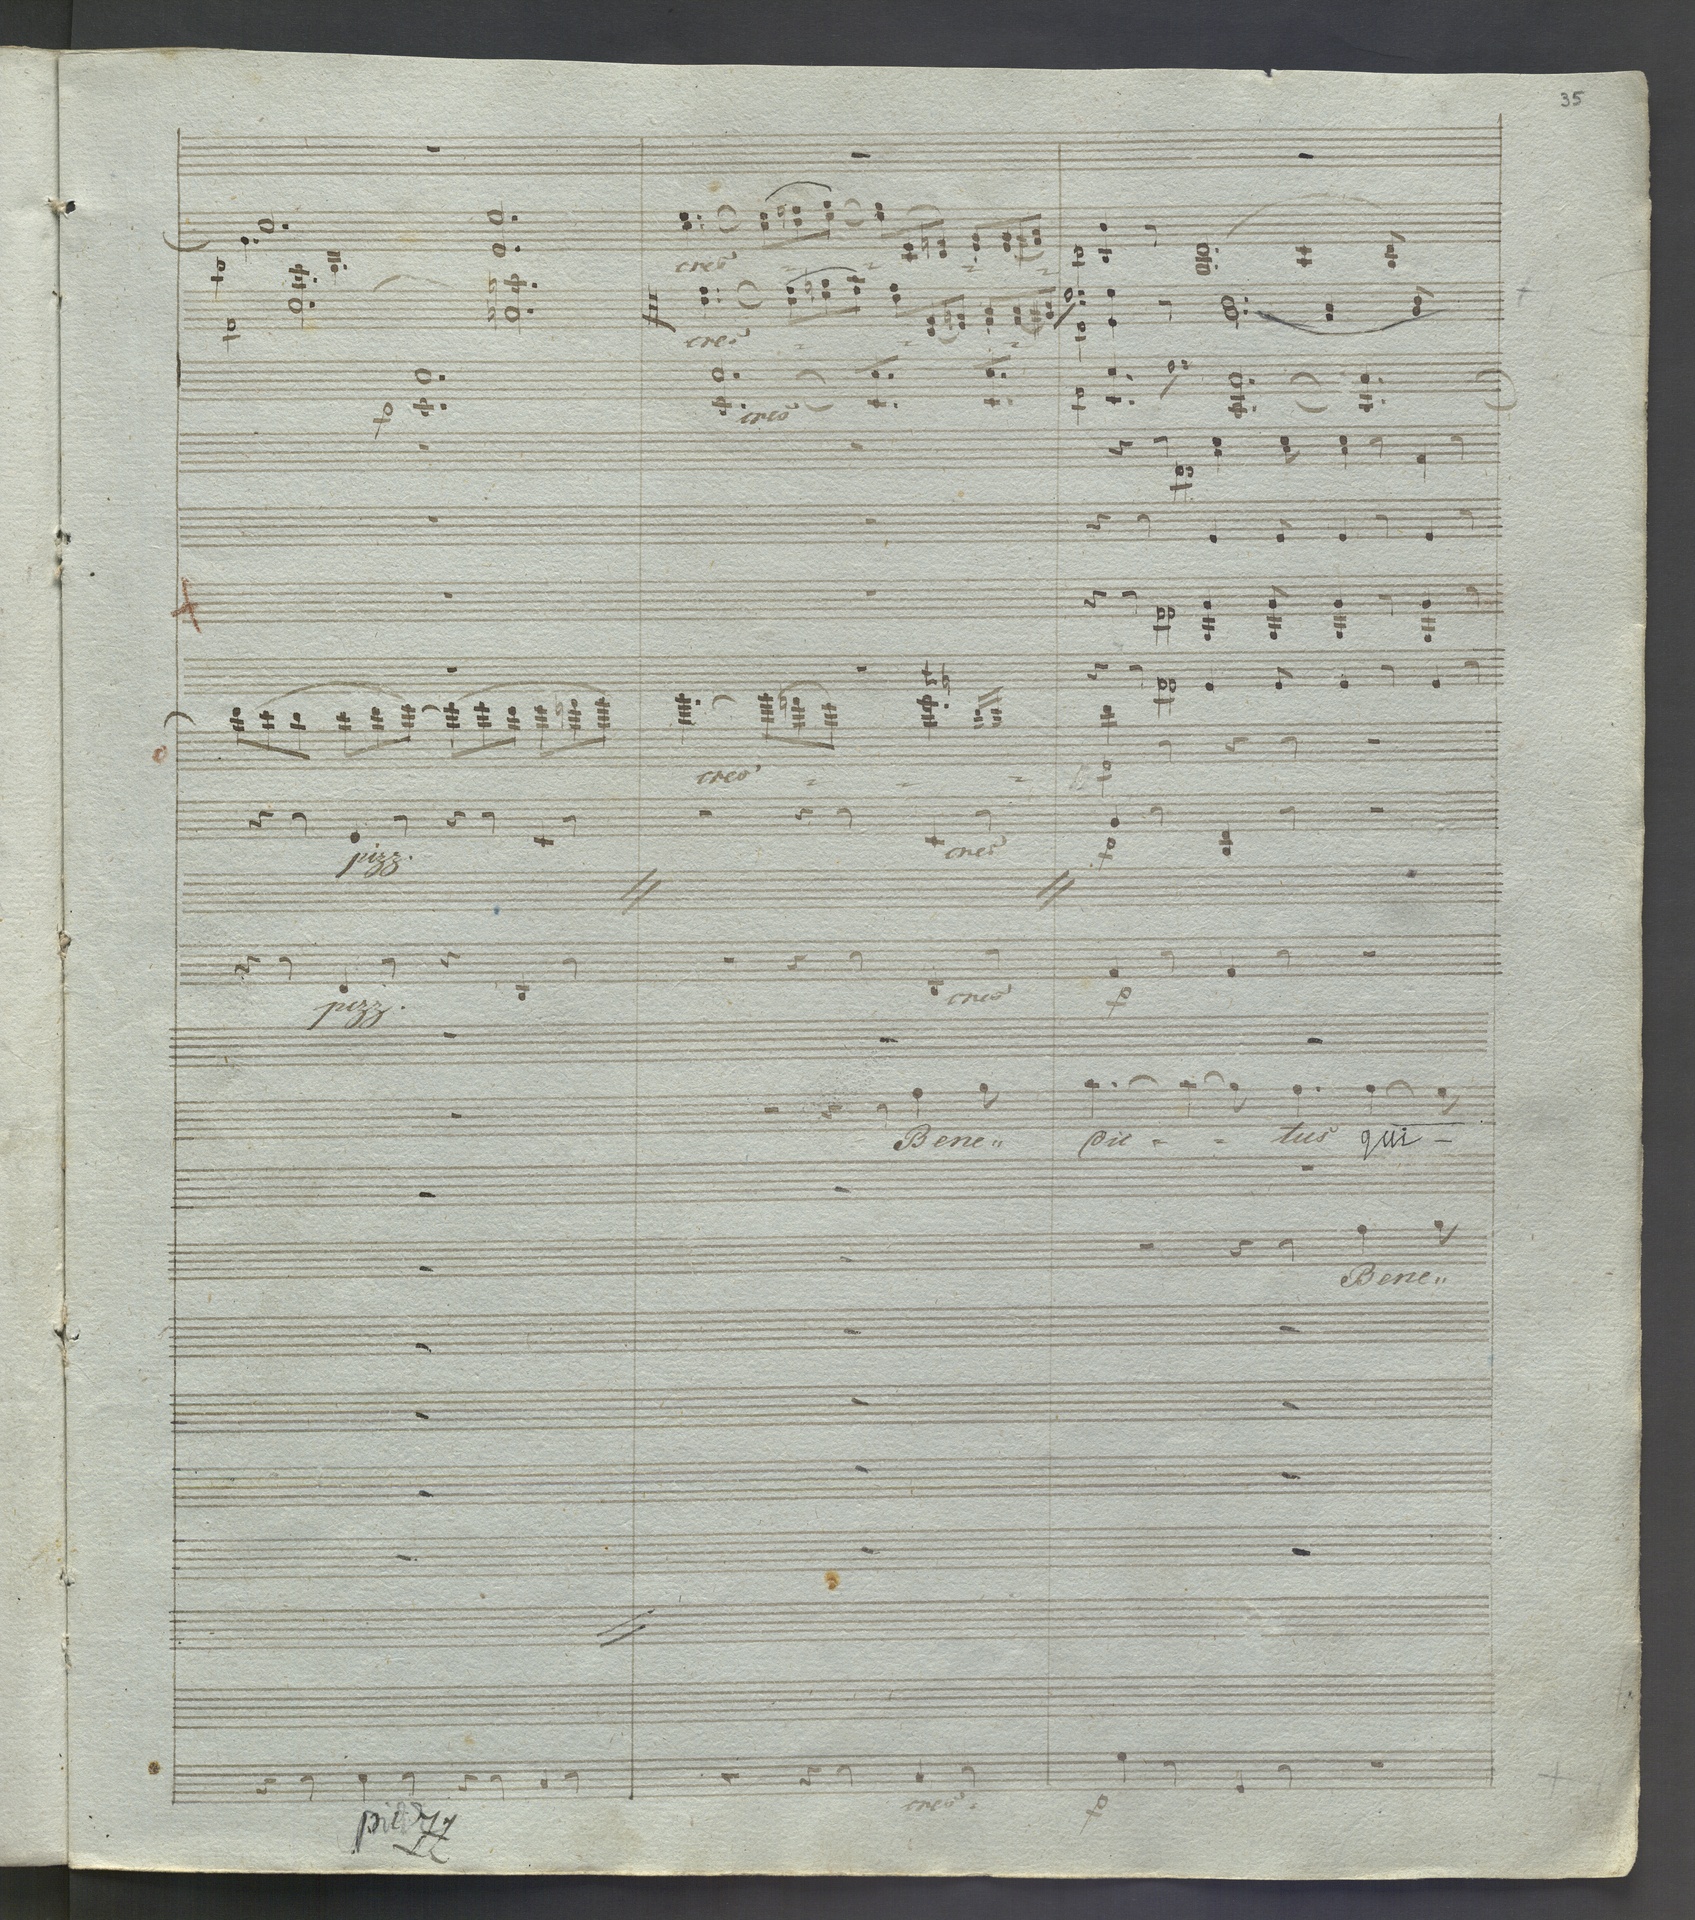 35
cres
cres
p
cres
p
p
p
cres
p
pizz.
cres
p
pizz.
cres
p
Bene„ dic - - tus qui -
Bene„
cres.
p
pizz